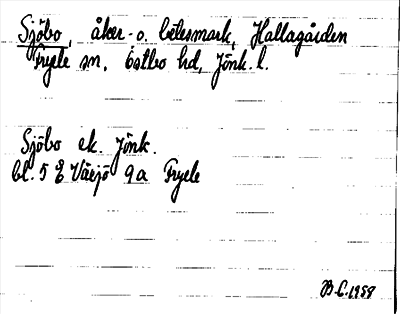 Sjöbo, åker- o. betesmark, Hallagården
Fryele sn, Östbo hd, Jönk. l.
Sjöbo ek. Jönk.
bl. 5 E Värjö 9a Fryele
B.L. 1958